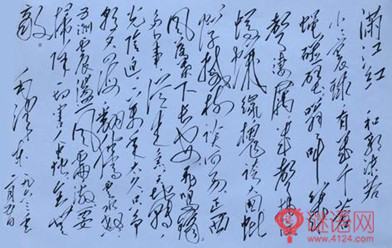 滿江红 和郭沫若
小小寰球有几个苍
蝇碰壁嗡嗡叫几
声凄厉几声抽泣
蚂蚁缘槐誇大国蚍
蜉撼树谈何易正西
风落叶下长安飞鸣镝
多少事从来急天地转
光阴迫一万年太久只争
朝夕四海翻腾云水怒
五洲震荡风雷激要
扫除一切害人虫全无
敌
毛泽东
一九六三年
一月九日
谜语网
www.4124.com